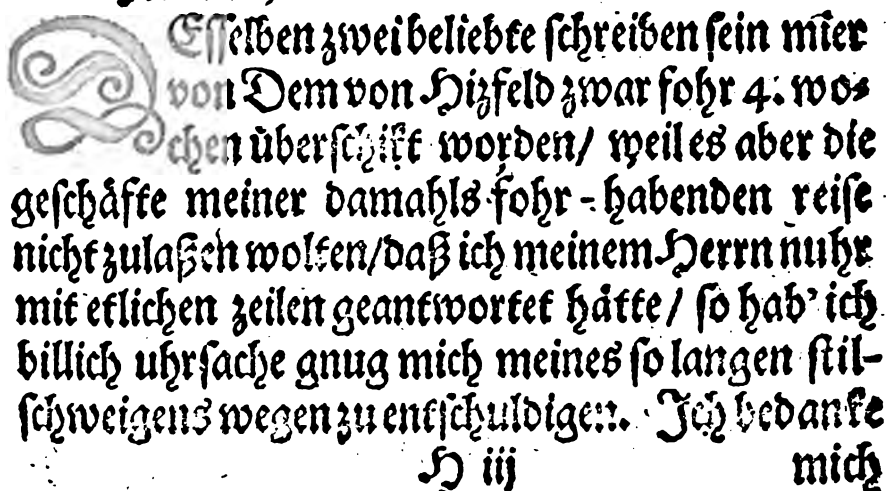 DEſſelben zwei beliebte ſchreiben ſein mier
von Dem von Hizfeld zwar fohr 4. wo⸗
chen uͤberſchikt worden/ weil es aber die
geſchaͤfte meiner damahls fohr-habenden reiſe
nicht zulaßen wolten/daß ich meinem Herrn nuhr
mit etlichen zeilen geantwortet haͤtte/ ſo hab' ich
billich uhrſache gnug mich meines ſo langen ſtil-
ſchweigens wegen zu entſchuldigen. Ich bedanke
H iij mich